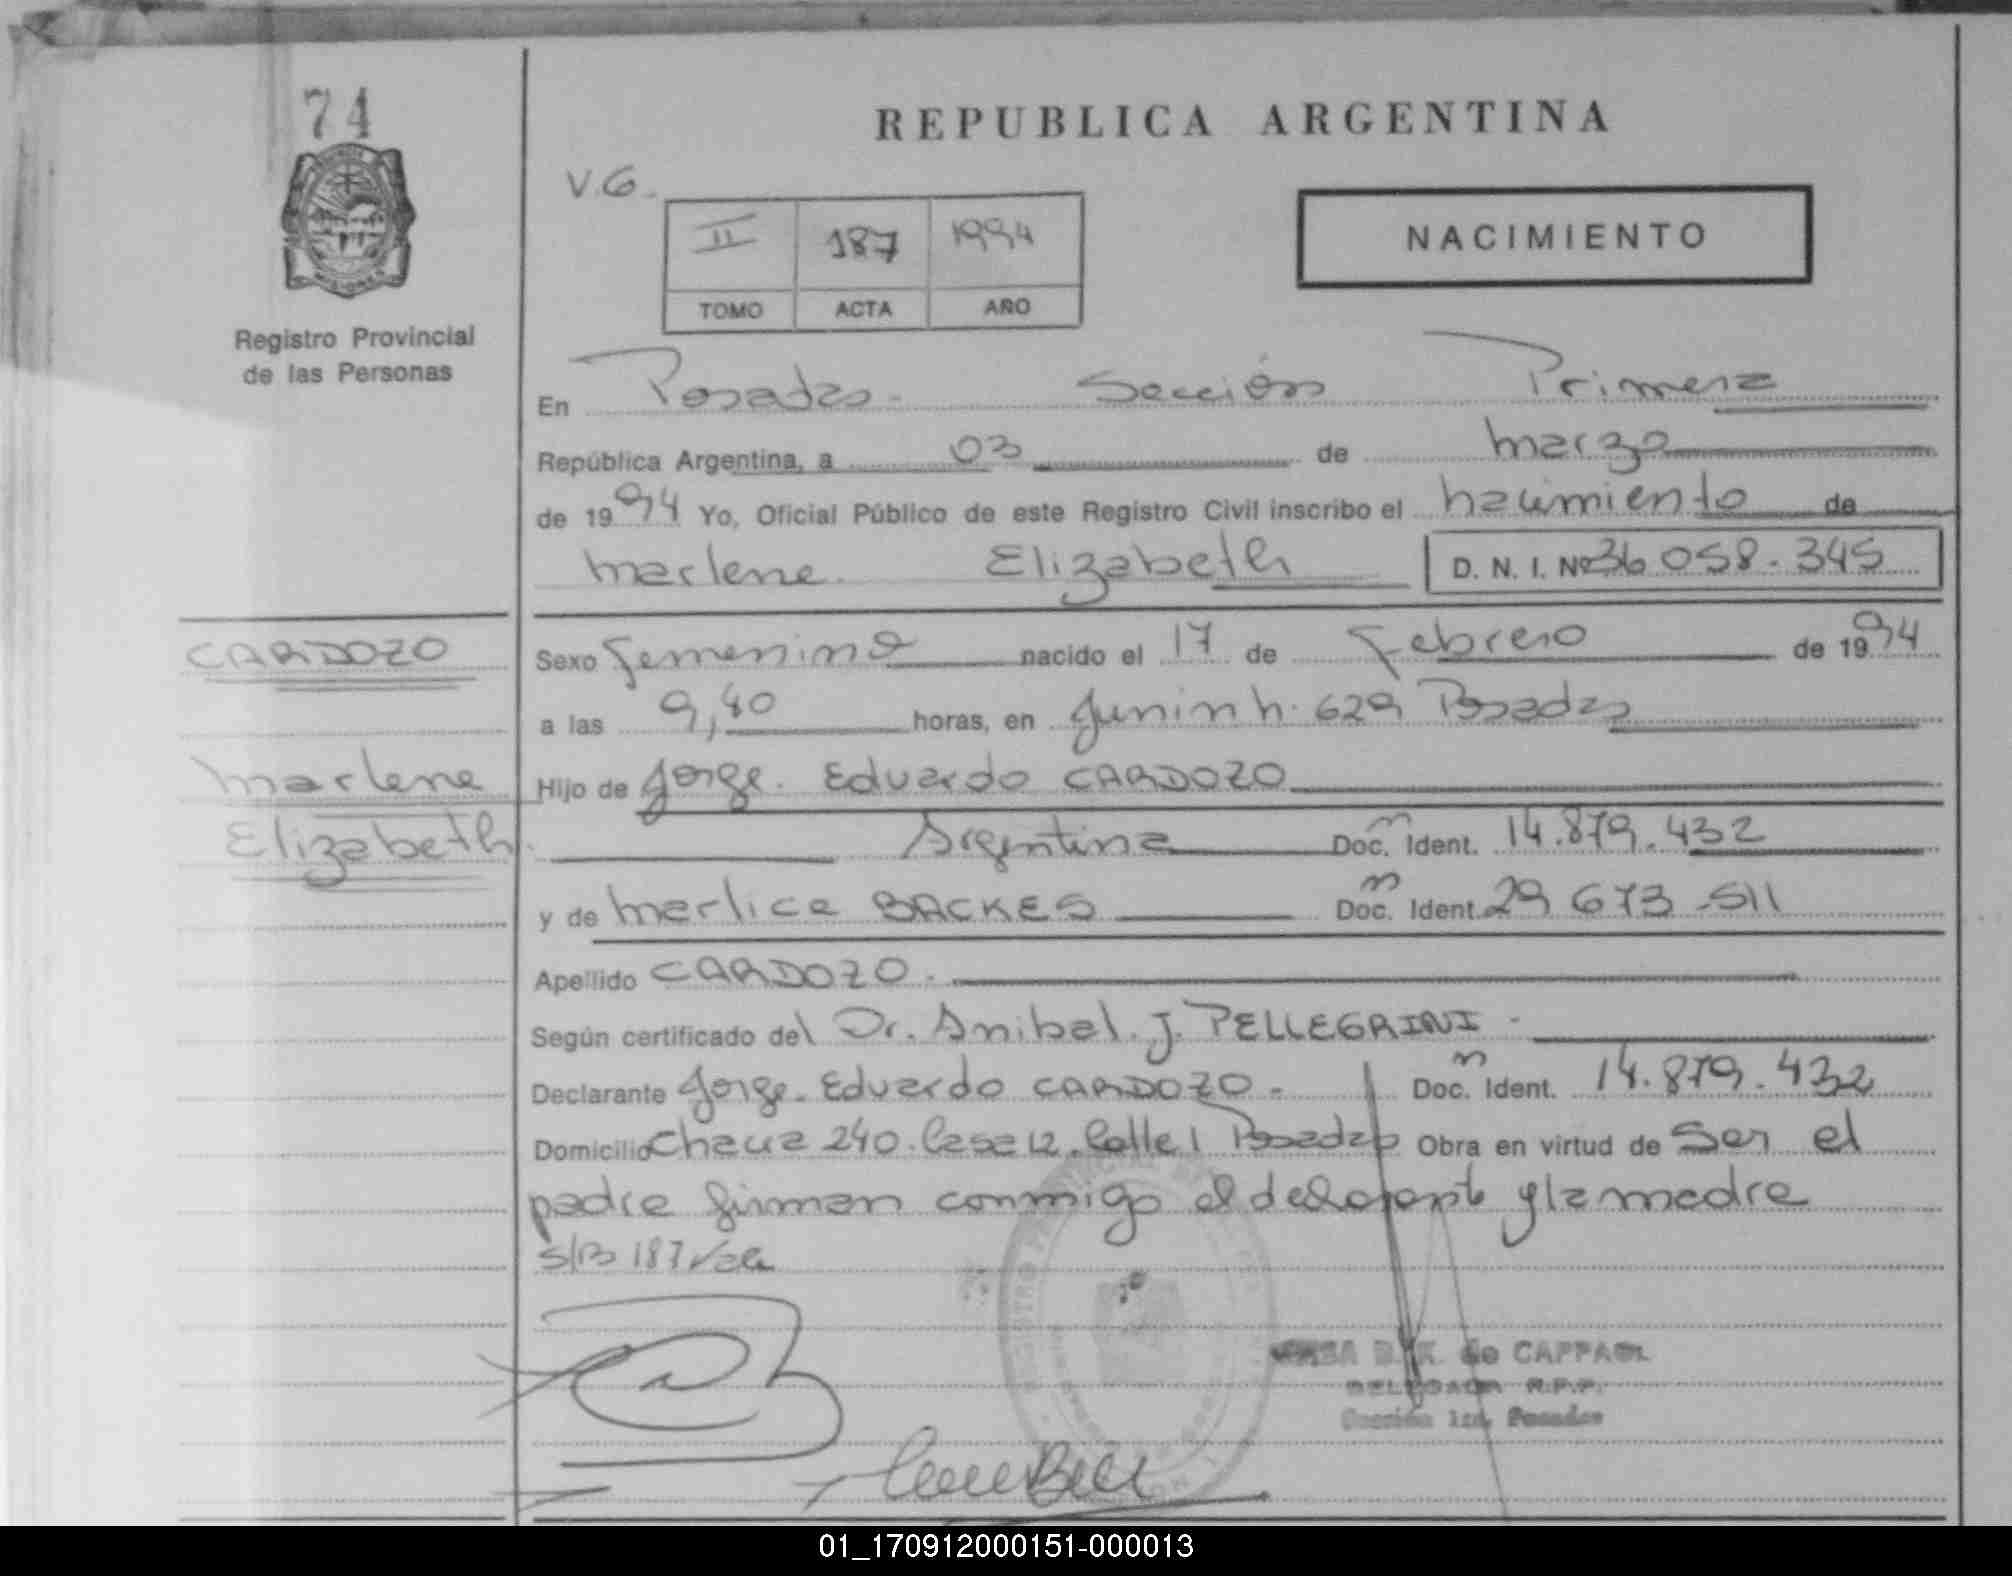 74
REPUBLICA ARGENTINA
V.G.
II 187 1994
TOMO ACTA AÑO
NACIMIENTO
Registro Provincial
de las Personas
En Posadas. Sección Primera
República Argentina, a 03 de marzo
de 1994 Yo, Oficial Público de este Registro Civil inscribo el nacimiento de
Marlene Elizabeth D. N. I. Nº 36 058.345
CARDOZO
Sexo femenino nacido el 17 de Febrero de 1994
a las 9,40 horas, en Junin n. 629 Posadas
Marlene
Hijo de Jorge Eduardo CARDOZO
Elizabeth
Argentina Doc. n Ident. 14.879.432
y de Marlice BACKES Doc. n Ident. 29 673.511
Apellido CARDOZO.
Según certificado del Dr. Anibal J. PELLEGRINI
Declarante Jorge Eduardo CARDOZO. Doc. n Ident. 14.879.432
Domicilio Chacra 240. Casa 12. Calle 1 Posadas Obra en virtud de Ser el
padre firman conmigo el declarante y la madre
S/B 187 vale
de CAPPAGL
DELEGADA R.P.P.
Sección 1ra. Posadas
01_170912000151-000013